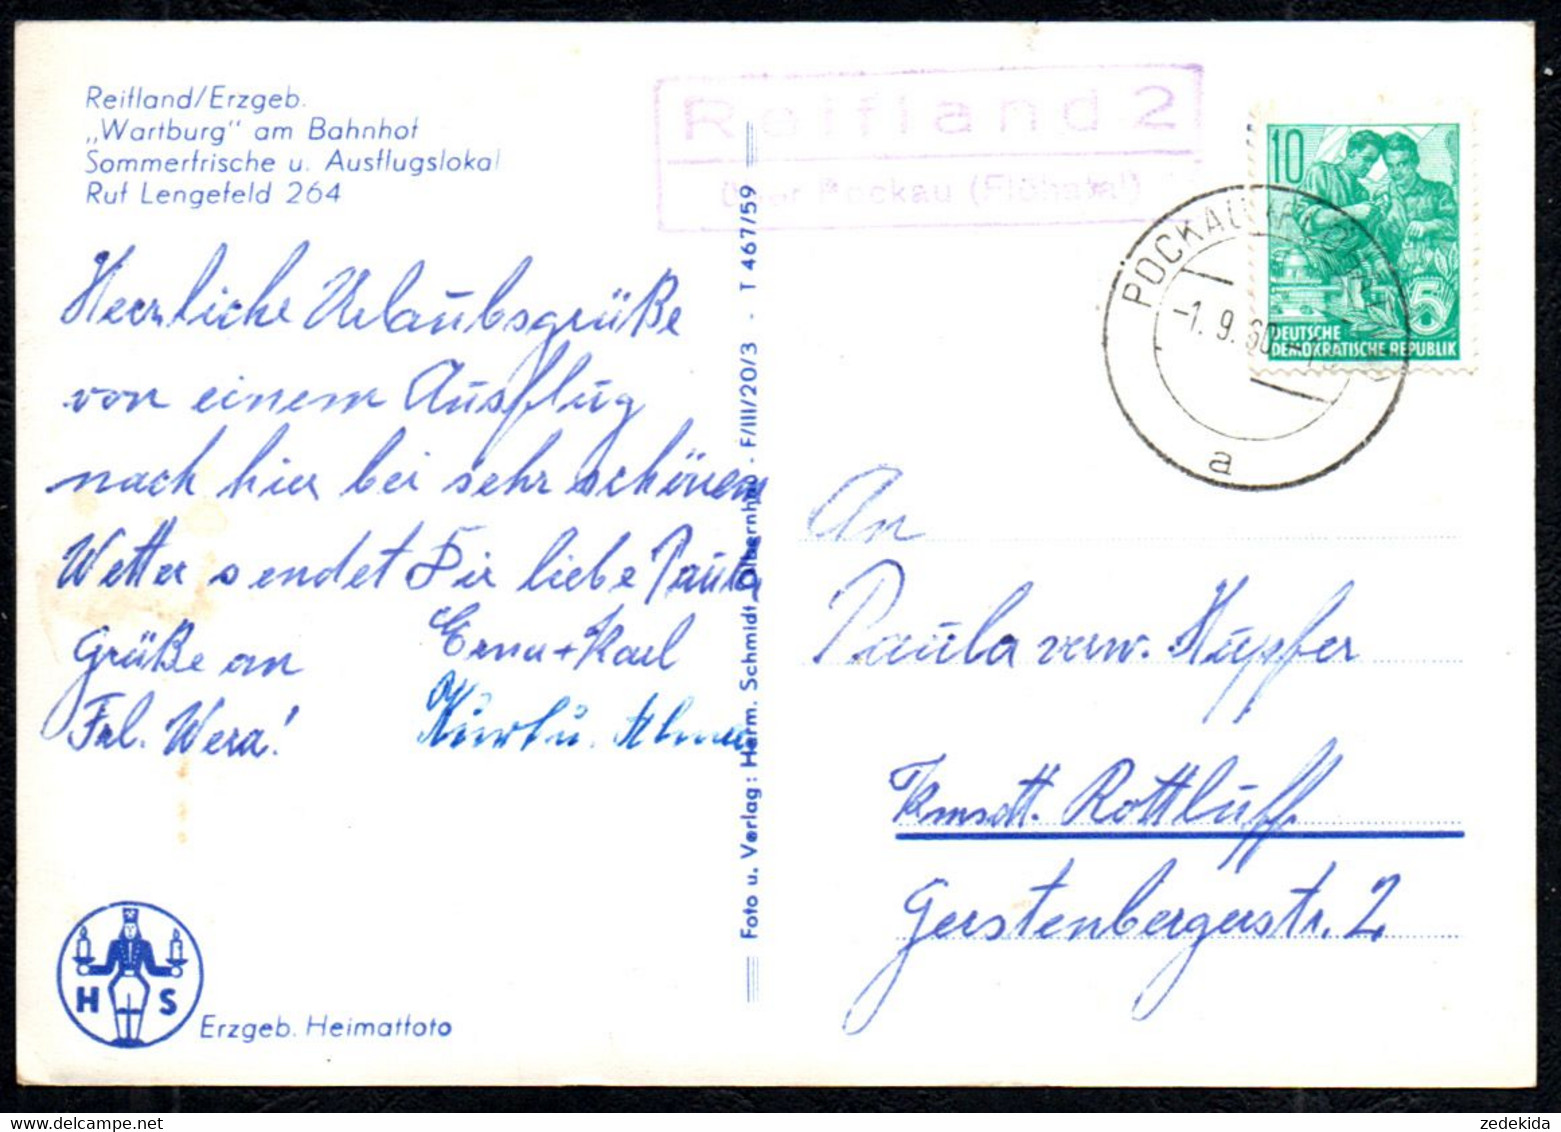 Reifland/Erzgeb.
„Wartburg" am Bahnhof
Sommerfrische u. Ausflugslokal
Ruf Lengefeld 264
Herzliche Urlaubsgrüße
von einem Ausflug
nach hier bei sehr schönem
Wetter sendet Dir liebe Paula
Erna + Karl
Grüße an
Frl. Wera!
Kurt u. Alma
H S
Erzgeb. Heimatfoto
Foto u. Verlag: Herm. Schmidt, Olbernhau · F/III/20/3 · T 467/59
Reifland 2
über Pockau (Flöhatal)
10
DEUTSCHE
DEMOKRATISCHE REPUBLIK
5
POCKAU
-1. 9. 60
a
An
Paula verw. Hupfer
Kmstt. Rottluff
Gerstenbergerstr. 2
zedekida